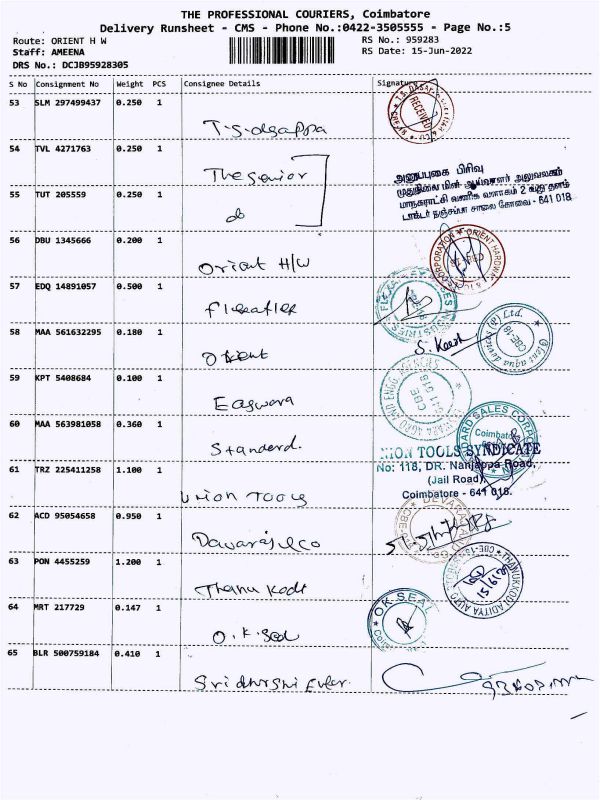 THE PROFESSIONAL COURIERS, Coimbatore
Delivery Runsheet - CMS - Phone No.:0422-3505555 - Page No.:5
Route: ORIENT H W
RS No.: 959283
Staff: AMEENA
RS Date: 15-Jun-2022
DRS No.: DCJB95928305
S No Consignment No Weight PCS Consignee Details Signature
53 SLM 297499437 0.250 1
RECEIVED
T.S. dasappa
54 TVL 4271763 0.250 1
The Senior
அனுப்புகை பிரிவு
முதுநிலை மின் ஆய்வாளர் அலுவலகம்
மாநகராட்சி வணிக வளாகம் 2 வது தளம்
டாக்டர் நஞ்சப்பா சாலை கோவை - 641 018.
55 TUT 205559 0.250 1
do
56 DBU 1345666 0.200 1
CORPORATION ★ ORIENT HARDWARE
Orient H/W
57 EDQ 14891057 0.500 1
58 MAA 561632295 0.180 1
Orient
CBE-18
59 KPT 5408684 0.100 1
AGRO AND ENGG. AGENCIES
CBE
641 018
Easwara
60 MAA 563981058 0.360 1
STANDARD SALES CORPORATION
Coimbatore
Standard.
61 TRZ 225411258 1.100 1
UNION TOOLS SYNDICATE
No: 118, DR. Nanjappa Road,
(Jail Road),
Coimbatore - 641 018.
Union Tools
62 ACD 95054658 0.950 1
Devaraj & Co
63 PON 4455259 1.200 1
15/6/22
Thanu Kodi
64 MRT 217729 0.147 1
OK SEAL
O.K. Seal
65 BLR 500759184 0.410 1